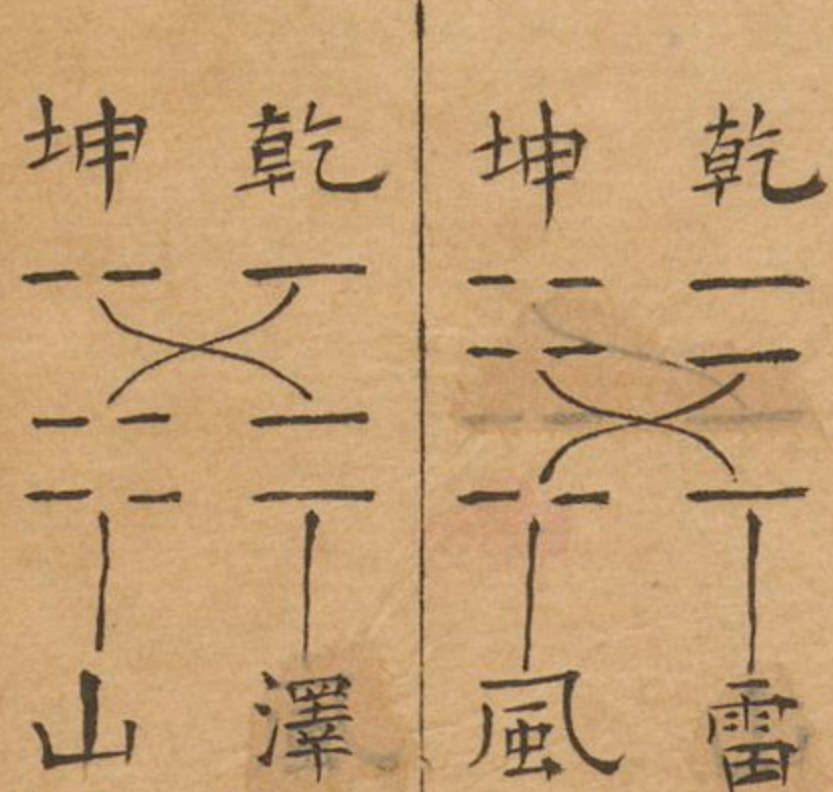 乾坤
雷風
乾坤
澤山